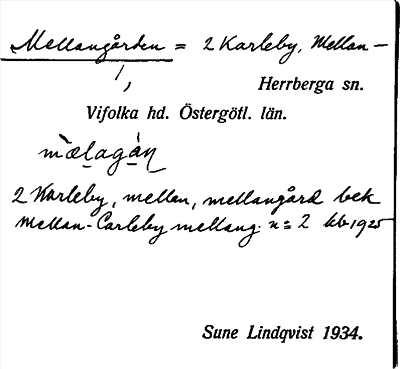 Mellangården = 2 Karleby, Mellan-
1/,
Herrberga sn.
Vifolka hd. Östergötl. län.
mæ̀lagán
2 Karleby, mellan, mellangård bek
Mellan-Carleby mellang: n = 2 kb 1925
Sune Lindqvist 1934.